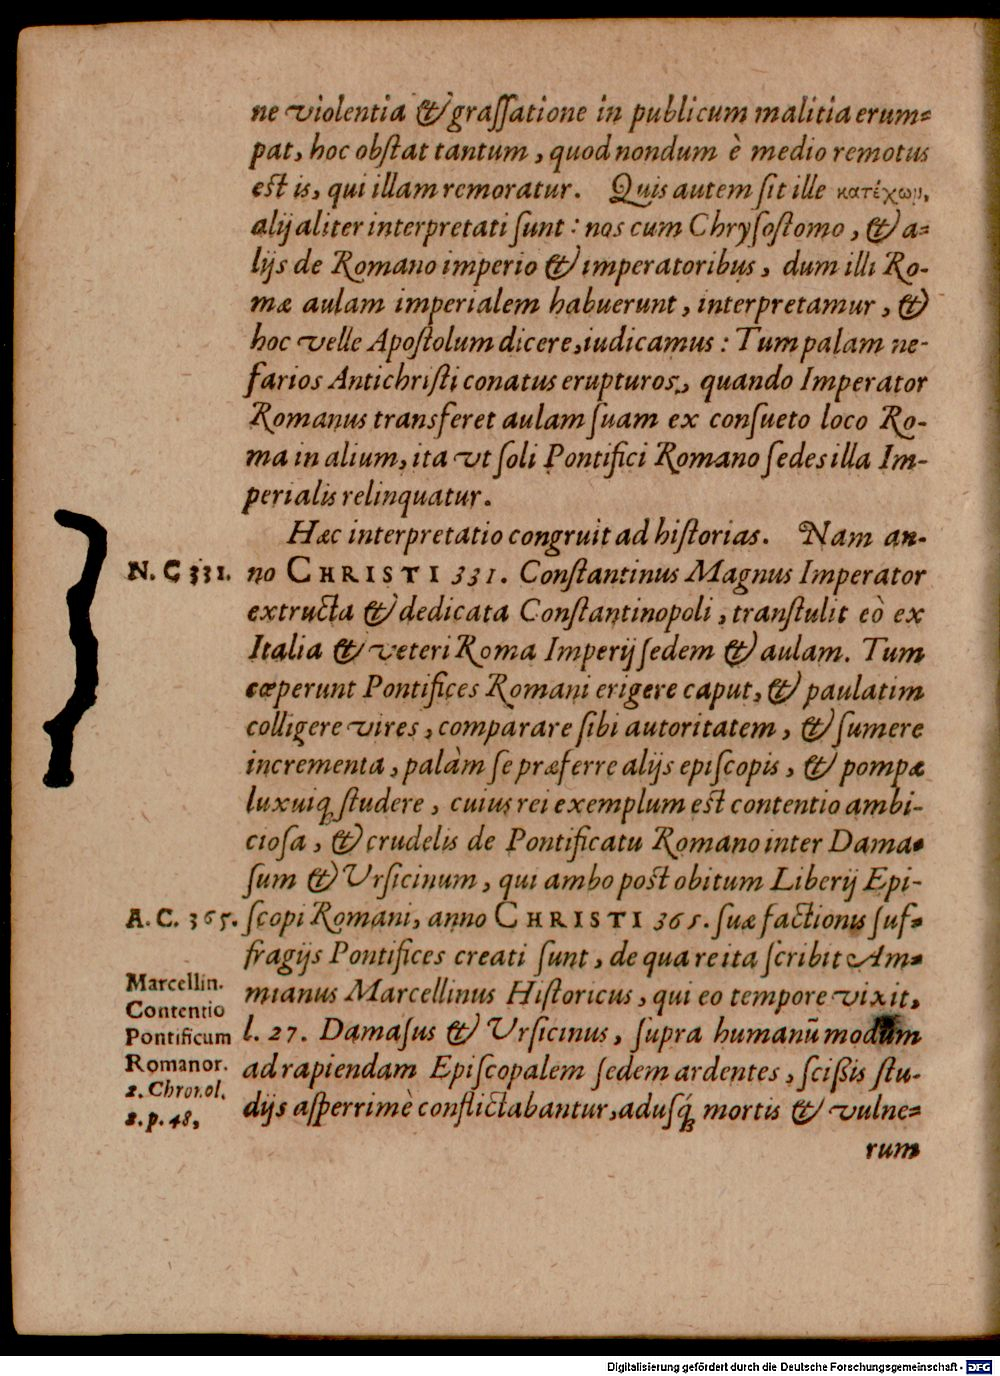 ne violentia & graſſatione in publicum malitia erum-
pat, hoc obſtat tantum, quod nondum è medio remotus
est is, qui illam remoratur. Quis autem ſit ille κατέχων,
alij aliter interpretati ſunt: nos cum Chryſoſtomo, & a-
lijs de Romano imperio & imperatoribus, dum illi Ro-
mæ aulam imperialem habuerunt, interpretamur, &
hoc velle Apoſtolum dicere, iudicamus: Tum palam ne-
farios Antichriſti conatus erupturos, quando Imperator
Romanus transferet aulam ſuam ex conſueto loco Ro-
ma in alium, ita vt ſoli Pontifici Romano ſedes illa Im-
perialis relinquatur.
Hæc interpretatio congruit ad hiſtorias. Nam an-
N. C 331. no CHRISTI 331. Conſtantinus Magnus Imperator
extructa & dedicata Conſtantinopoli, tranſtulit eò ex
Italia & veteri Roma Imperij ſedem & aulam. Tum
cœperunt Pontifices Romani erigere caput, & paulatim
colligere vires, comparare ſibi autoritatem, & ſumere
incrementa, palàm ſe præferre alijs epiſcopis, & pompæ
luxuiq; ſtudere, cuius rei exemplum est contentio ambi-
cioſa, & crudelis de Pontificatu Romano inter Dama-
ſum & Vrſicinum, qui ambo post obitum Liberij Epi-
A. C. 365. ſcopi Romani, anno CHRISTI 365. ſuæ factionis ſuf-
fragijs Pontifices creati ſunt, de qua re ita ſcribit Am-
mianus Marcellinus Hiſtoricus, qui eo tempore vixit,
l. 27. Damaſus & Vrſicinus, ſupra humanū modum
ad rapiendam Epiſcopalem ſedem ardentes, ſciſsis ſtu-
dijs aſperrimè conflictabantur, aduſq; mortis & vulne-
rum
Marcellin.
Contentio
Pontificum
Romanor.
2. Chronol.
2. p. 48,
Digitalisierung gefördert durch die Deutsche Forschungsgemeinschaft - DFG